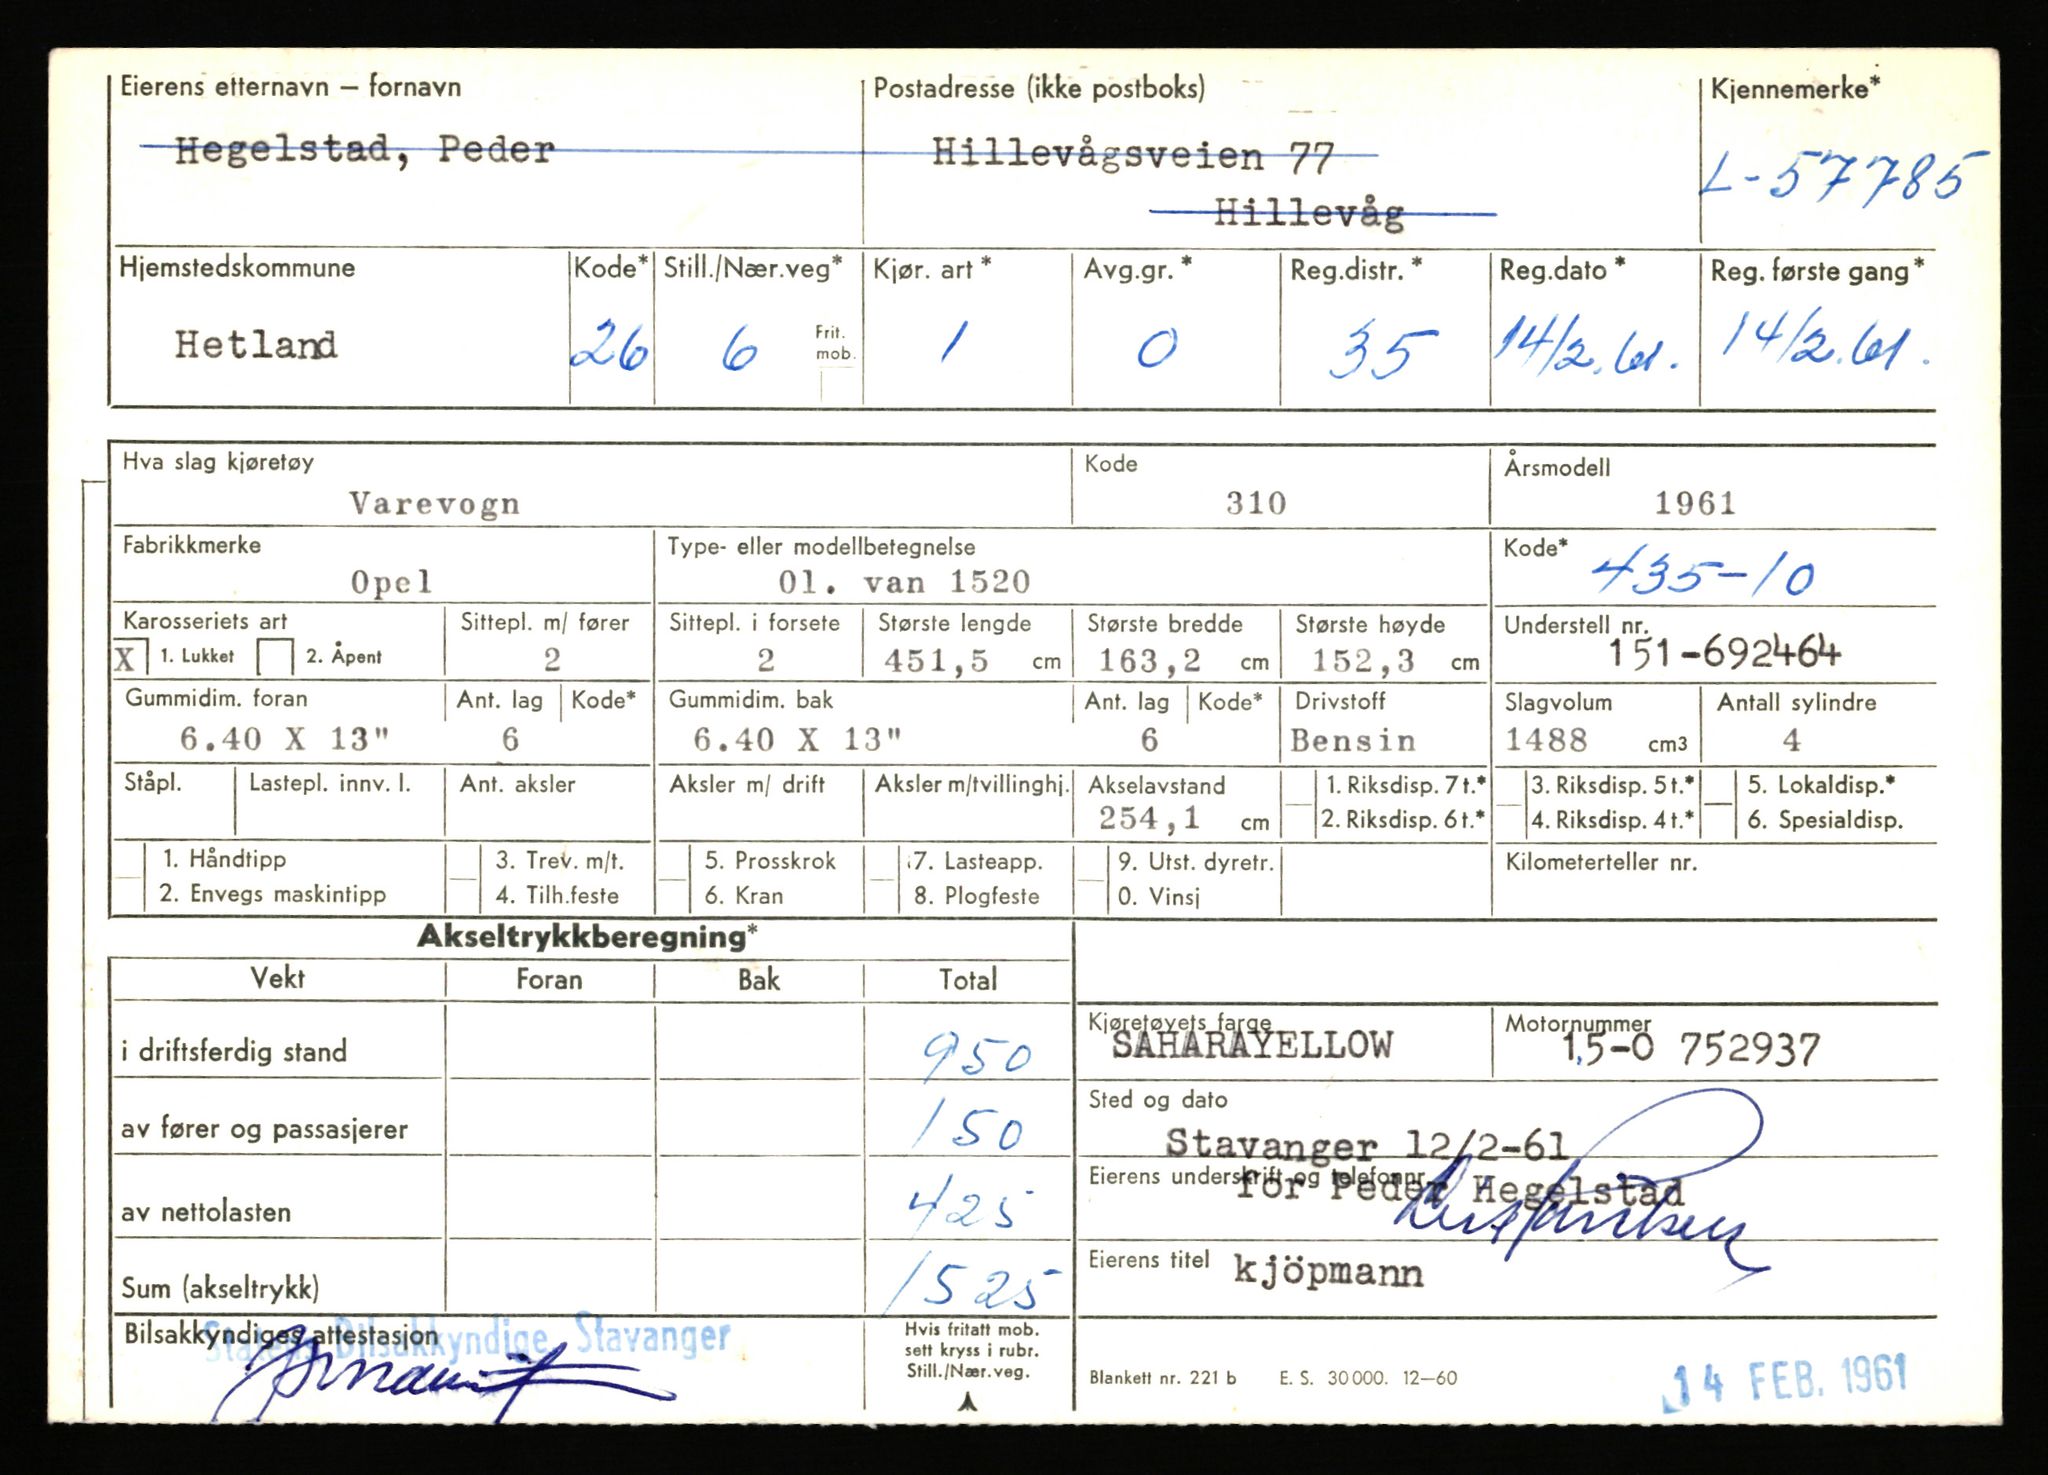 Eierens etternavn – fornavn Postadresse (ikke postboks) Kjennemerke*
Hegelstad, Peder Hillevågsveien 77 L-57785
Hillevåg
Hjemstedskommune Kode* Still./Nær.veg* Kjør. art * Avg.gr. * Reg.distr. * Reg.dato * Reg. første gang*
Hetland 26 6 Frit. mob. 1 0 35 14/2.61. 14/2.61.
Hva slag kjøretøy Kode Årsmodell
Varevogn 310 1961
Fabrikkmerke Type- eller modellbetegnelse Kode*
Opel Ol. van 1520 435-10
Karosseriets art Sittepl. m/ fører Sittepl. i forsete Største lengde Største bredde Største høyde Understell nr.
X 1. Lukket 2. Åpent 2 2 451,5 cm 163,2 cm 152,3 cm 151-692464
Gummidim. foran Ant. lag Kode* Gummidim. bak Ant. lag Kode* Drivstoff Slagvolum Antall sylindre
6.40 X 13" 6 6.40 X 13" 6 Bensin 1488 cm3 4
Ståpl. Lastepl. innv. l. Ant. aksler Aksler m/ drift Aksler m/tvillinghj. Akselavstand 1. Riksdisp. 7 t.* 3. Riksdisp. 5 t.* 5. Lokaldisp.*
254,1 cm 2. Riksdisp. 6 t.* 4. Riksdisp. 4 t.* 6. Spesialdisp.
1. Håndtipp 3. Trev. m/t. 5. Prosskrok 7. Lasteapp. 9. Utst. dyretr. Kilometerteller nr.
2. Envegs maskintipp 4. Tilh.feste 6. Kran 8. Plogfeste 0. Vinsj
Akseltrykkberegning*
Vekt Foran Bak Total
Kjøretøyets farge Motornummer
i driftsferdig stand 950 SAHARAYELLOW 1,5-0 752937
Sted og dato
av fører og passasjerer 150 Stavanger 12/2-61
Eierens underskrift og telefonnr.
for Peder Hegelstad
av nettolasten 425
Eierens titel kjöpmann
Sum (akseltrykk) 1525
Bilsakkyndiges attestasjon Statens Bilsakkyndige, Stavanger
Hvis fritatt mob.
sett kryss i rubr.
Still./Nær.veg.
Blankett nr. 221 b E. S. 30 000. 12–60 14 FEB. 1961